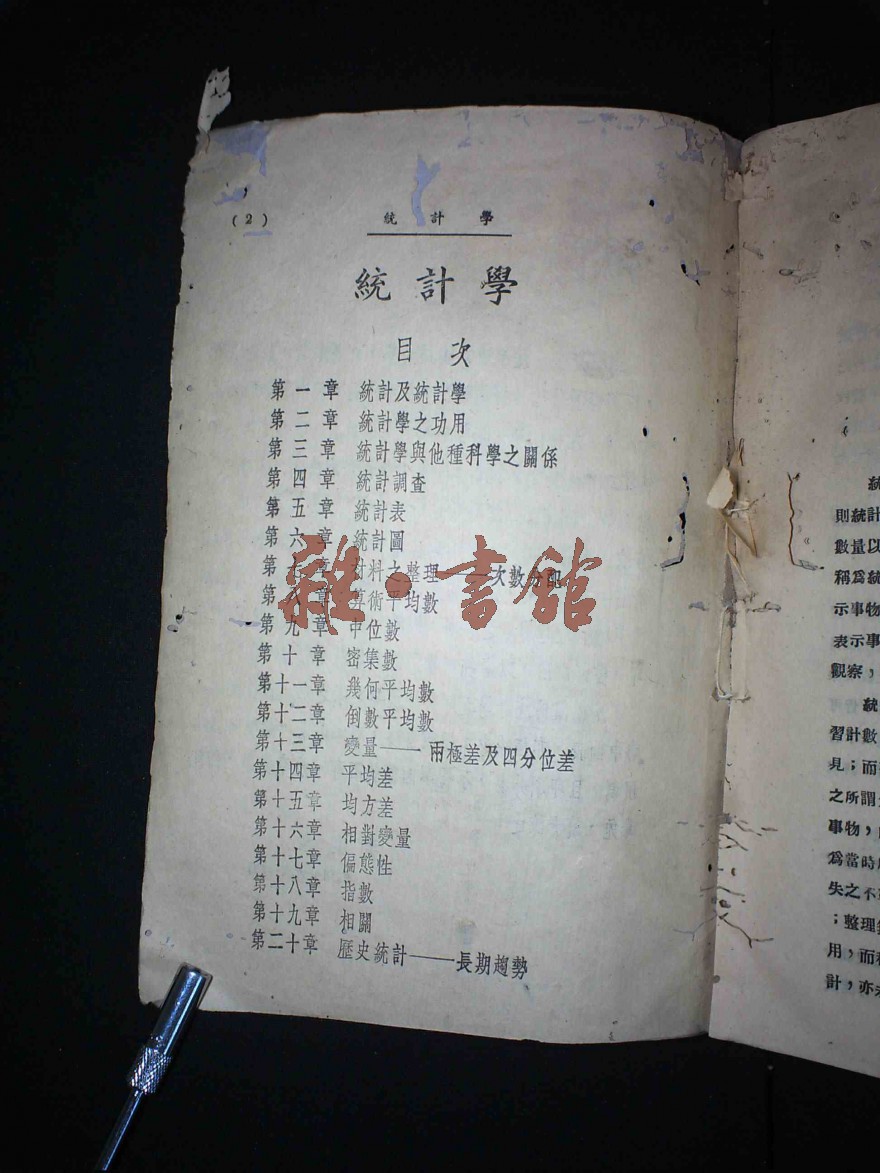 (2)
統計學
統計學
目次
第一章 統計及統計學
第二章 統計學之功用
第三章 統計學與他種科學之關係
第四章 統計調查
第五章 統計表
第六章 統計圖
第七章 材料之整理——次數分配
第八章 算術平均數
第九章 中位數
第十章 密集數
第十一章 幾何平均數
第十二章 倒數平均數
第十三章 變量——兩極差及四分位差
第十四章 平均差
第十五章 均方差
第十六章 相對變量
第十七章 偏態性
第十八章 指數
第十九章 相關
第二十章 歷史統計——長期趨勢
雜·書館
統
則統計
數量以
稱為統
示事物
表示事
觀察，
統
習計數
見；而
之所謂
事物，
為當時
失之不
；整理
用，而
計，亦